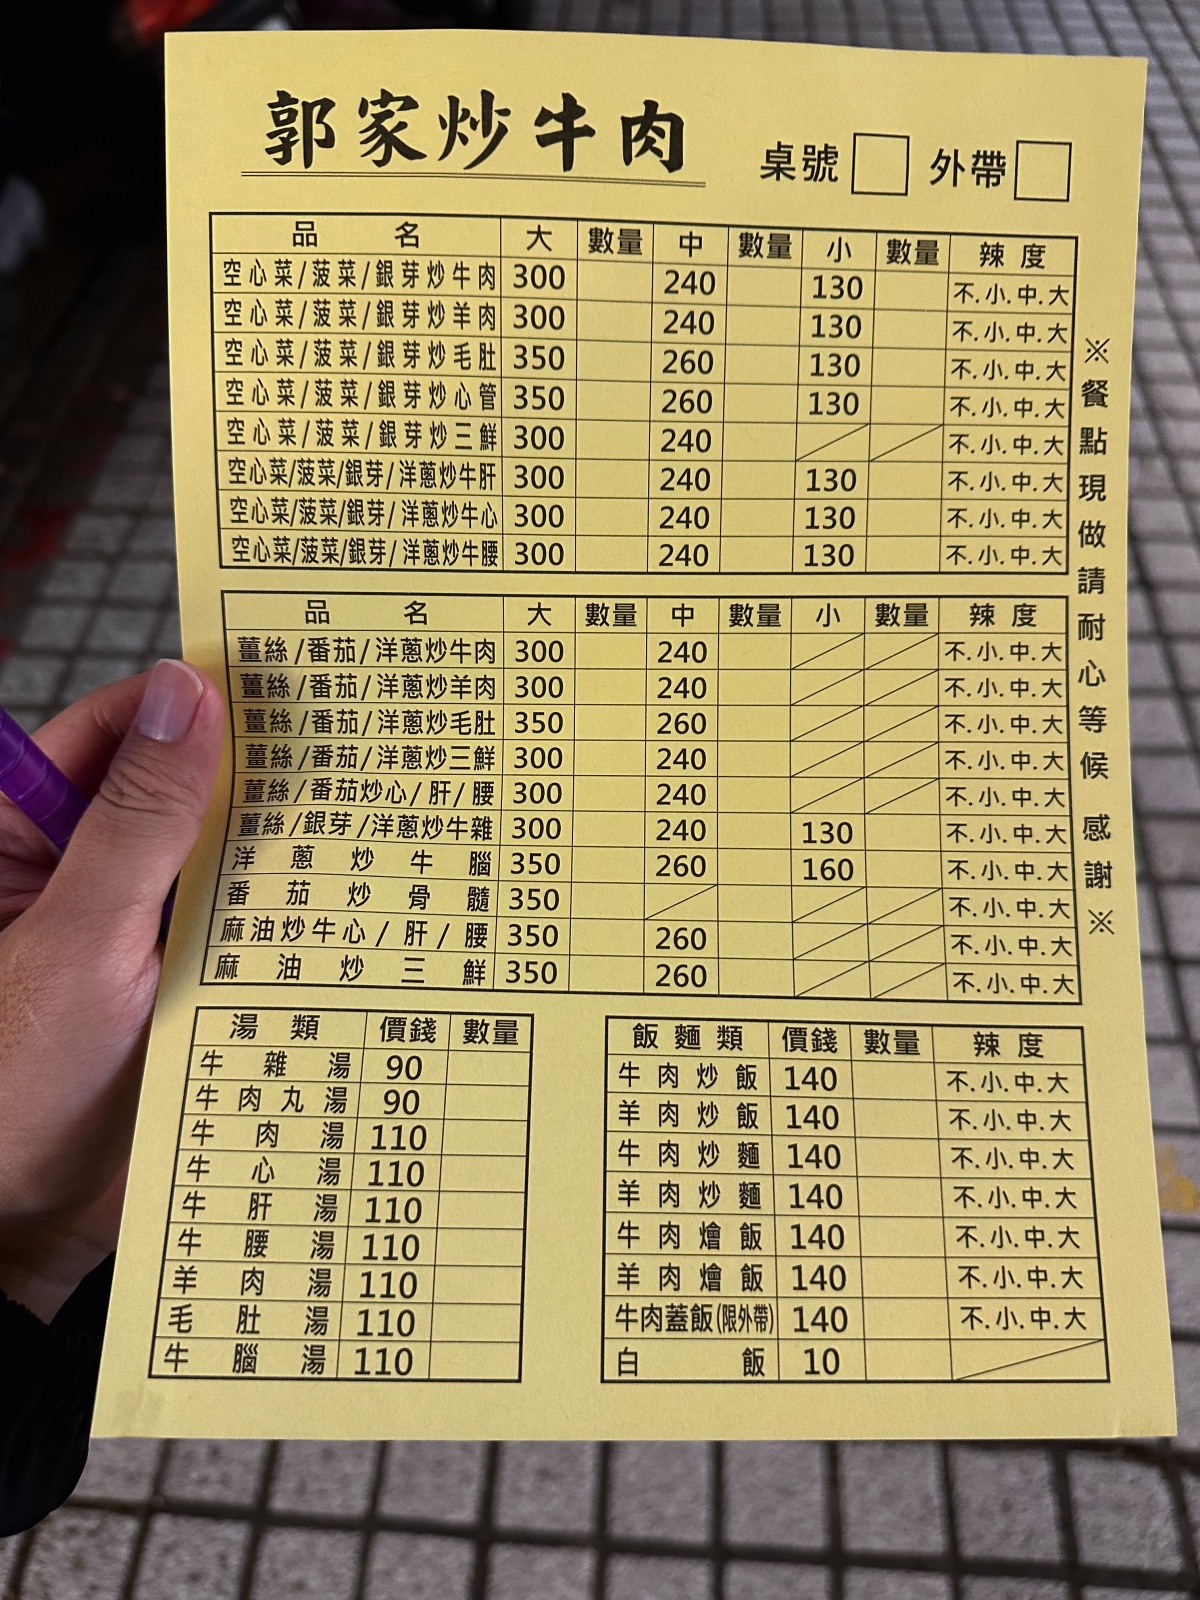 郭家炒牛肉 桌號 外帶
品名 大 數量 中 數量 小 數量 辣度
空心菜/菠菜/銀芽炒牛肉 300 240 130 不.小.中.大
空心菜/菠菜/銀芽炒羊肉 300 240 130 不.小.中.大
空心菜/菠菜/銀芽炒毛肚 350 260 130 不.小.中.大
空心菜/菠菜/銀芽炒心管 350 260 130 不.小.中.大
空心菜/菠菜/銀芽炒三鮮 300 240 不.小.中.大
空心菜/菠菜/銀芽/洋蔥炒牛肝 300 240 130 不.小.中.大
空心菜/菠菜/銀芽/洋蔥炒牛心 300 240 130 不.小.中.大
空心菜/菠菜/銀芽/洋蔥炒牛腰 300 240 130 不.小.中.大
品名 大 數量 中 數量 小 數量 辣度
薑絲/番茄/洋蔥炒牛肉 300 240 不.小.中.大
薑絲/番茄/洋蔥炒羊肉 300 240 不.小.中.大
薑絲/番茄/洋蔥炒毛肚 350 260 不.小.中.大
薑絲/番茄/洋蔥炒三鮮 300 240 不.小.中.大
薑絲/番茄炒心/肝/腰 300 240 不.小.中.大
薑絲/銀芽/洋蔥炒牛雜 300 240 130 不.小.中.大
洋蔥炒牛腦 350 260 160 不.小.中.大
番茄炒骨髓 350 不.小.中.大
麻油炒牛心/肝/腰 350 260 不.小.中.大
麻油炒三鮮 350 260 不.小.中.大
※餐點現做請耐心等候 感謝※
湯類 價錢 數量
牛雜湯 90
牛肉丸湯 90
牛肉湯 110
牛心湯 110
牛肝湯 110
牛腰湯 110
羊肉湯 110
毛肚湯 110
牛腦湯 110
飯麵類 價錢 數量 辣度
牛肉炒飯 140 不.小.中.大
羊肉炒飯 140 不.小.中.大
牛肉炒麵 140 不.小.中.大
羊肉炒麵 140 不.小.中.大
牛肉燴飯 140 不.小.中.大
羊肉燴飯 140 不.小.中.大
牛肉蓋飯(限外帶) 140 不.小.中.大
白飯 10